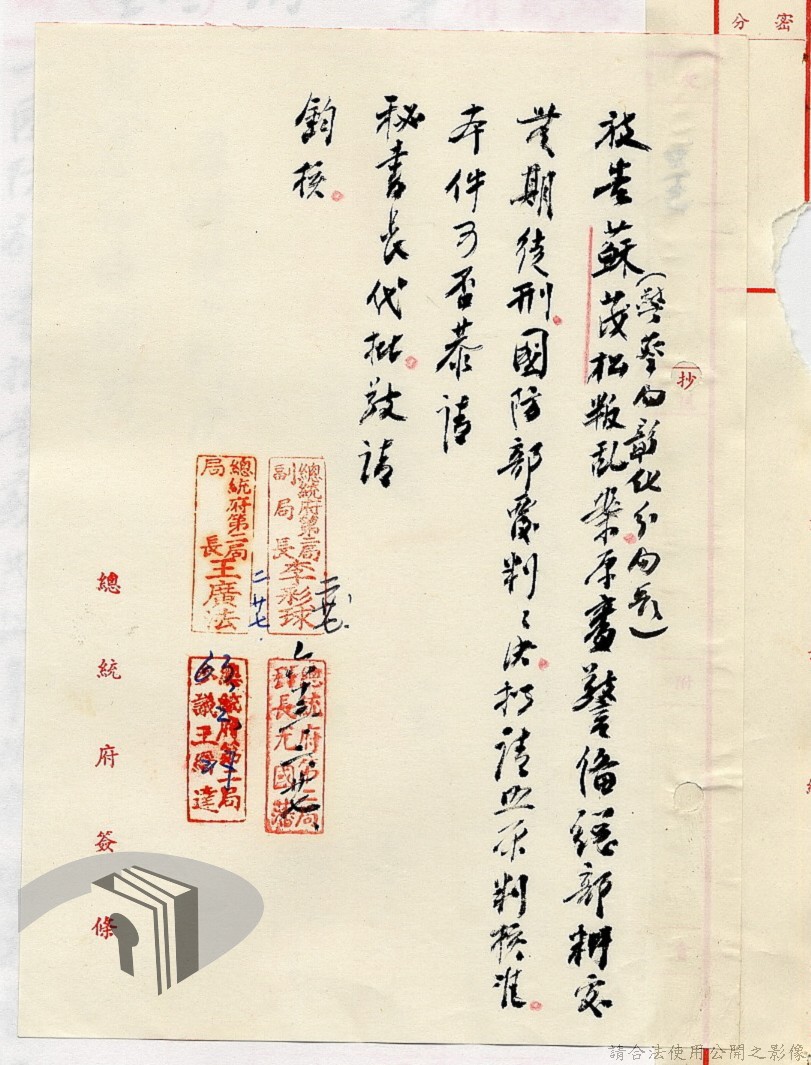 密
分
抄
(警總
彰化分
)
被告蘇茂松叛乱案原審警備總部判處
無期徒刑國防部覆判之決拟請照原判核准
本件可否恭請
秘書長代批敬請
鈞核
總統府第二局
副局長李彩球
二廿七
總統府第二局
局長王廣法
二廿七
總統府第二局
科長尤國藩
六十三、二、廿七、
總統府第二局
王
達
總統府簽條
請合法使用公開之影像